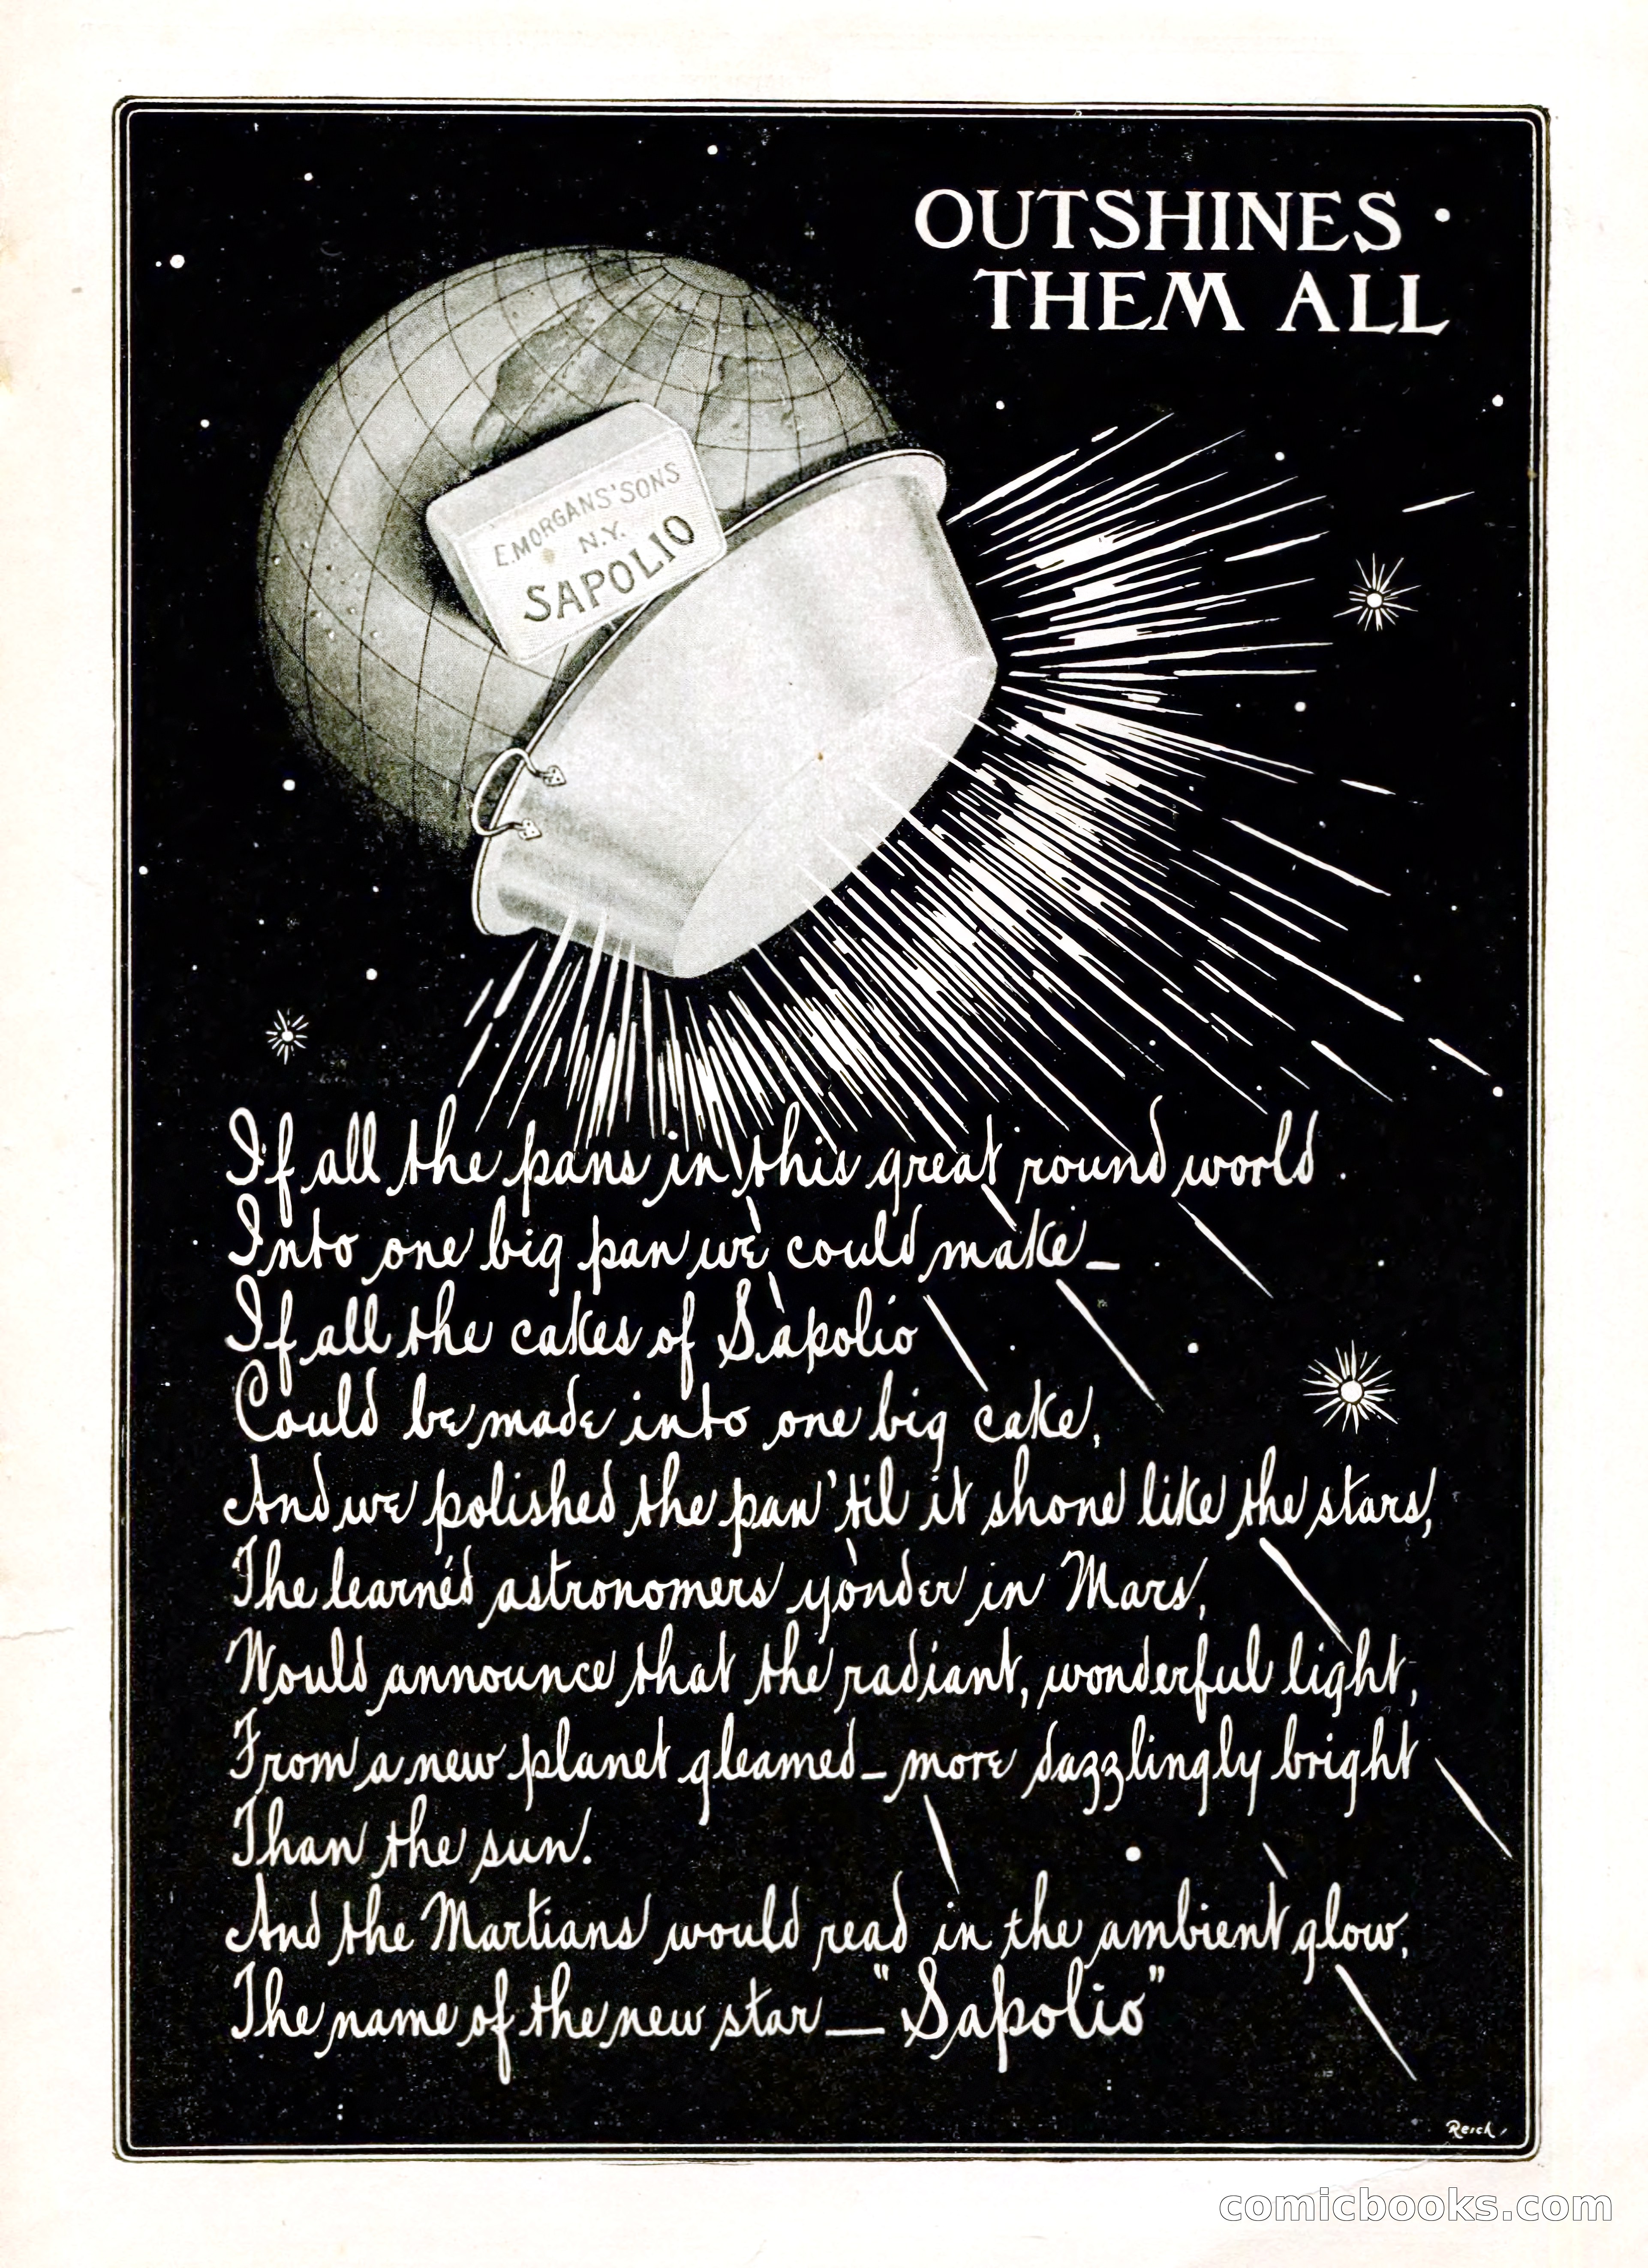 OUTSHINES
THEM ALL
E.MORGANS' SONS
N.Y.
SAPOLIO
If all the pans in this great round world
Into one big pan we could make—
If all the cakes of Sapolio
Could be made into one big cake,
And we polished the pan 'til it shone like the stars,
The learnéd astronomers yonder in Mars,
Would announce that the radiant, wonderful light,
From a new planet gleamed— more dazzlingly bright
Than the sun.
And the Martians would read in the ambient glow,
The name of the new star — "Sapolio"
Reich
comicbooks.com